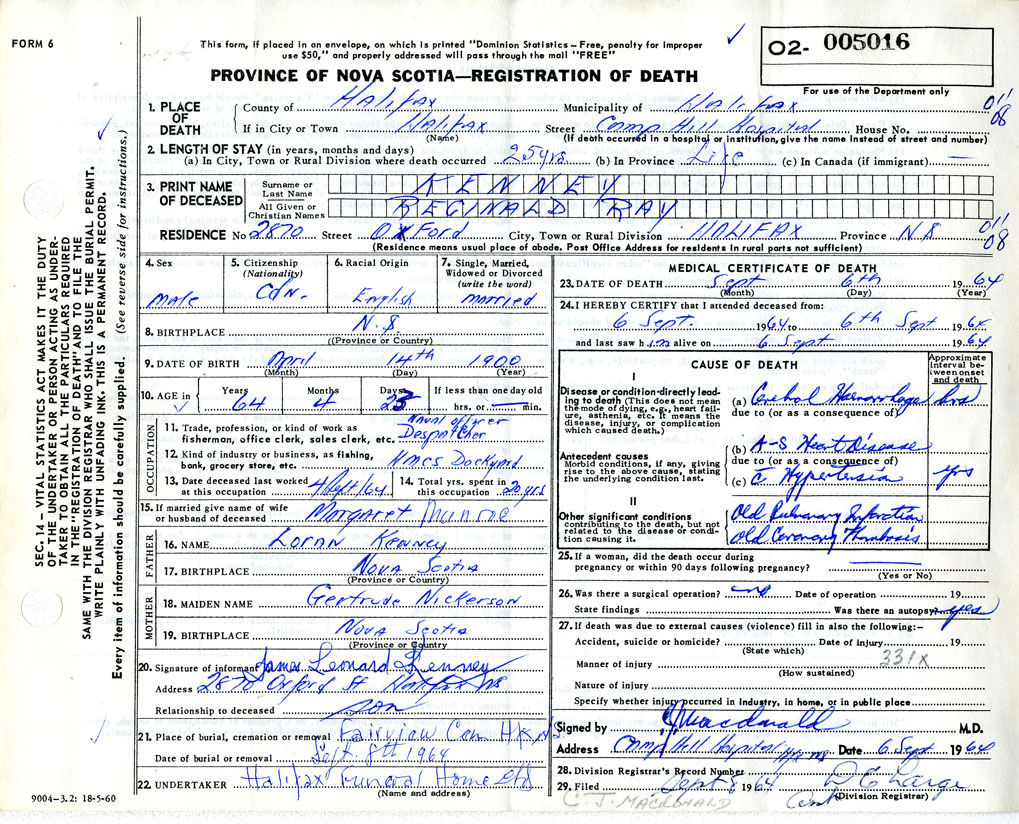 FORM 6
This form, if placed in an envelope, on which is printed "Dominion Statistics – Free, penalty for improper
use $50," and properly addressed will pass through the mail "FREE"
O2- 005016
For use of the Department only
PROVINCE OF NOVA SCOTIA—REGISTRATION OF DEATH
SEC. 14—VITAL STATISTICS ACT MAKES IT THE DUTY
OF THE UNDERTAKER OR PERSON ACTING AS UNDER-
TAKER TO OBTAIN ALL THE PARTICULARS REQUIRED
IN THE "REGISTRATION OF DEATH" AND TO FILE THE
SAME WITH THE DIVISION REGISTRAR WHO SHALL ISSUE THE BURIAL PERMIT.
WRITE PLAINLY WITH UNFADING INK. THIS IS A PERMANENT RECORD.
Every item of information should be carefully supplied. (See reverse side for instructions.)
1. PLACE OF DEATH
County of Halifax Municipality of Halifax 011
08
If in City or Town Halifax Street Camp Hill Hospital House No.
(Name) (If death occurred in a hospital or institution, give the name instead of street and number)
2. LENGTH OF STAY (in years, months and days)
(a) In City, Town or Rural Division where death occurred 25 yrs. (b) In Province Life (c) In Canada (if immigrant) —
3. PRINT NAME OF DECEASED
Surname or Last Name KENNEY
All Given or Christian Names REGINALD RAY
RESIDENCE No 2870 Street OXFord City, Town or Rural Division HALIFAX Province NS 011
08
(Residence means usual place of abode. Post Office Address for residents in rural parts not sufficient)
4. Sex
male
5. Citizenship
(Nationality)
CDN.
6. Racial Origin
English
7. Single, Married,
Widowed or Divorced
(write the word)
married
8. BIRTHPLACE N.S.
(Province or Country)
9. DATE OF BIRTH April 14th 1900
(Month) (Day) (Year)
10. AGE in
Years Months Days If less than one day old
64 4 23 hrs. or — min.
OCCUPATION
11. Trade, profession, or kind of work as
fisherman, office clerk, sales clerk, etc. Naval officer
Despatcher
12. Kind of industry or business, as fishing,
bank, grocery store, etc. HMCS Dockyard
13. Date deceased last worked
at this occupation 4/Sept/64
14. Total yrs. spent in
this occupation 20 yrs
15. If married give name of wife
or husband of deceased Margaret Munroe
FATHER
16. NAME Loran Kenney
17. BIRTHPLACE Nova Scotia
(Province or Country)
MOTHER
18. MAIDEN NAME Gertrude Nickerson
19. BIRTHPLACE Nova Scotia
(Province or Country)
20. Signature of informant James Leonard Kenney
Address 2870 Oxford St Halifax NS
Relationship to deceased son
21. Place of burial, cremation or removal Fairview Cem Hfx NS
Date of burial or removal Sept. 8th 1964
22. UNDERTAKER Halifax Funeral Home Ltd
(Name and address)
9004-3.2: 18-5-60
MEDICAL CERTIFICATE OF DEATH
23. DATE OF DEATH Sept 6th 1964
(Month) (Day) (Year)
24. I HEREBY CERTIFY that I attended deceased from:
6 Sept. 1964 to 6th Sept 1964
and last saw him alive on 6 Sept 1964
CAUSE OF DEATH
Approximate
interval be-
tween onset
and death
I
Disease or condition directly lead-
ing to death (This does not mean
the mode of dying, e.g., heart fail-
ure, asthenia, etc. It means the
disease, injury, or complication
which caused death.)
(a) Cerebral Haemorrhage hrs
due to (or as a consequence of)
Antecedent causes
Morbid conditions, if any, giving
rise to the above cause, stating
the underlying condition last.
(b) A-S Heart Disease
due to (or as a consequence of)
(c) c Hypertension yrs
II
Other significant conditions
contributing to the death, but not
related to the disease or condi-
tion causing it.
Old Pulmonary Infarction
Old Coronary Thrombosis
25. If a woman, did the death occur during
pregnancy or within 90 days following pregnancy? —
(Yes or No)
26. Was there a surgical operation? no Date of operation 19
State findings Was there an autopsy? yes
27. If death was due to external causes (violence) fill in also the following:–
Accident, suicide or homicide? Date of injury 19
(State which)
331X
Manner of injury
(How sustained)
Nature of injury
Specify whether injury occurred in industry, in home, or in public place
Signed by CJ Macdonald M.D.
Address Camp Hill Hospital Hfx NS Date 6 Sept 1964
28. Division Registrar's Record Number
29. Filed Sept 8 1964 D E Large
(Division Registrar)
C. J. MACDONALD